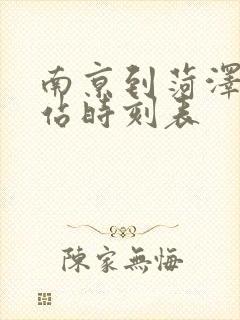 南京到菏澤
佔時刻表
陳家無悔